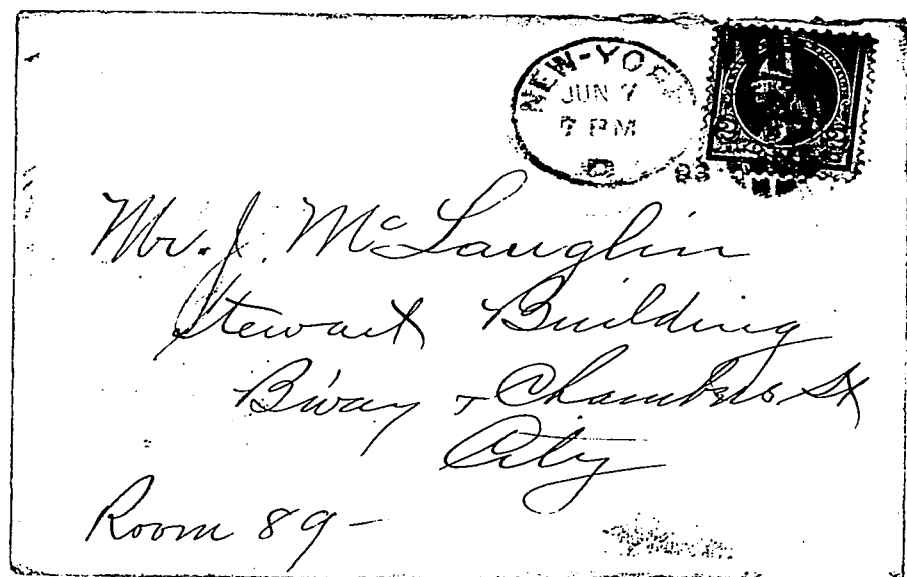 NEW-YORK
JUN 7
7 PM
Mr. J. McLauglin
Stewart Building
B'way + Chambers St
City
Room 89-